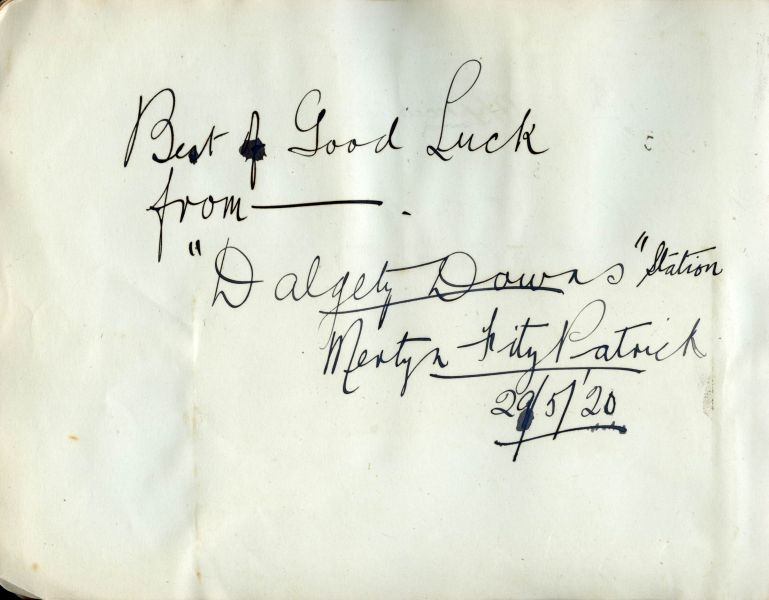 Best of Good Luck
from ———.
"Dalgety Downs" Station
Mertyn FitzPatrick
29/5/'20